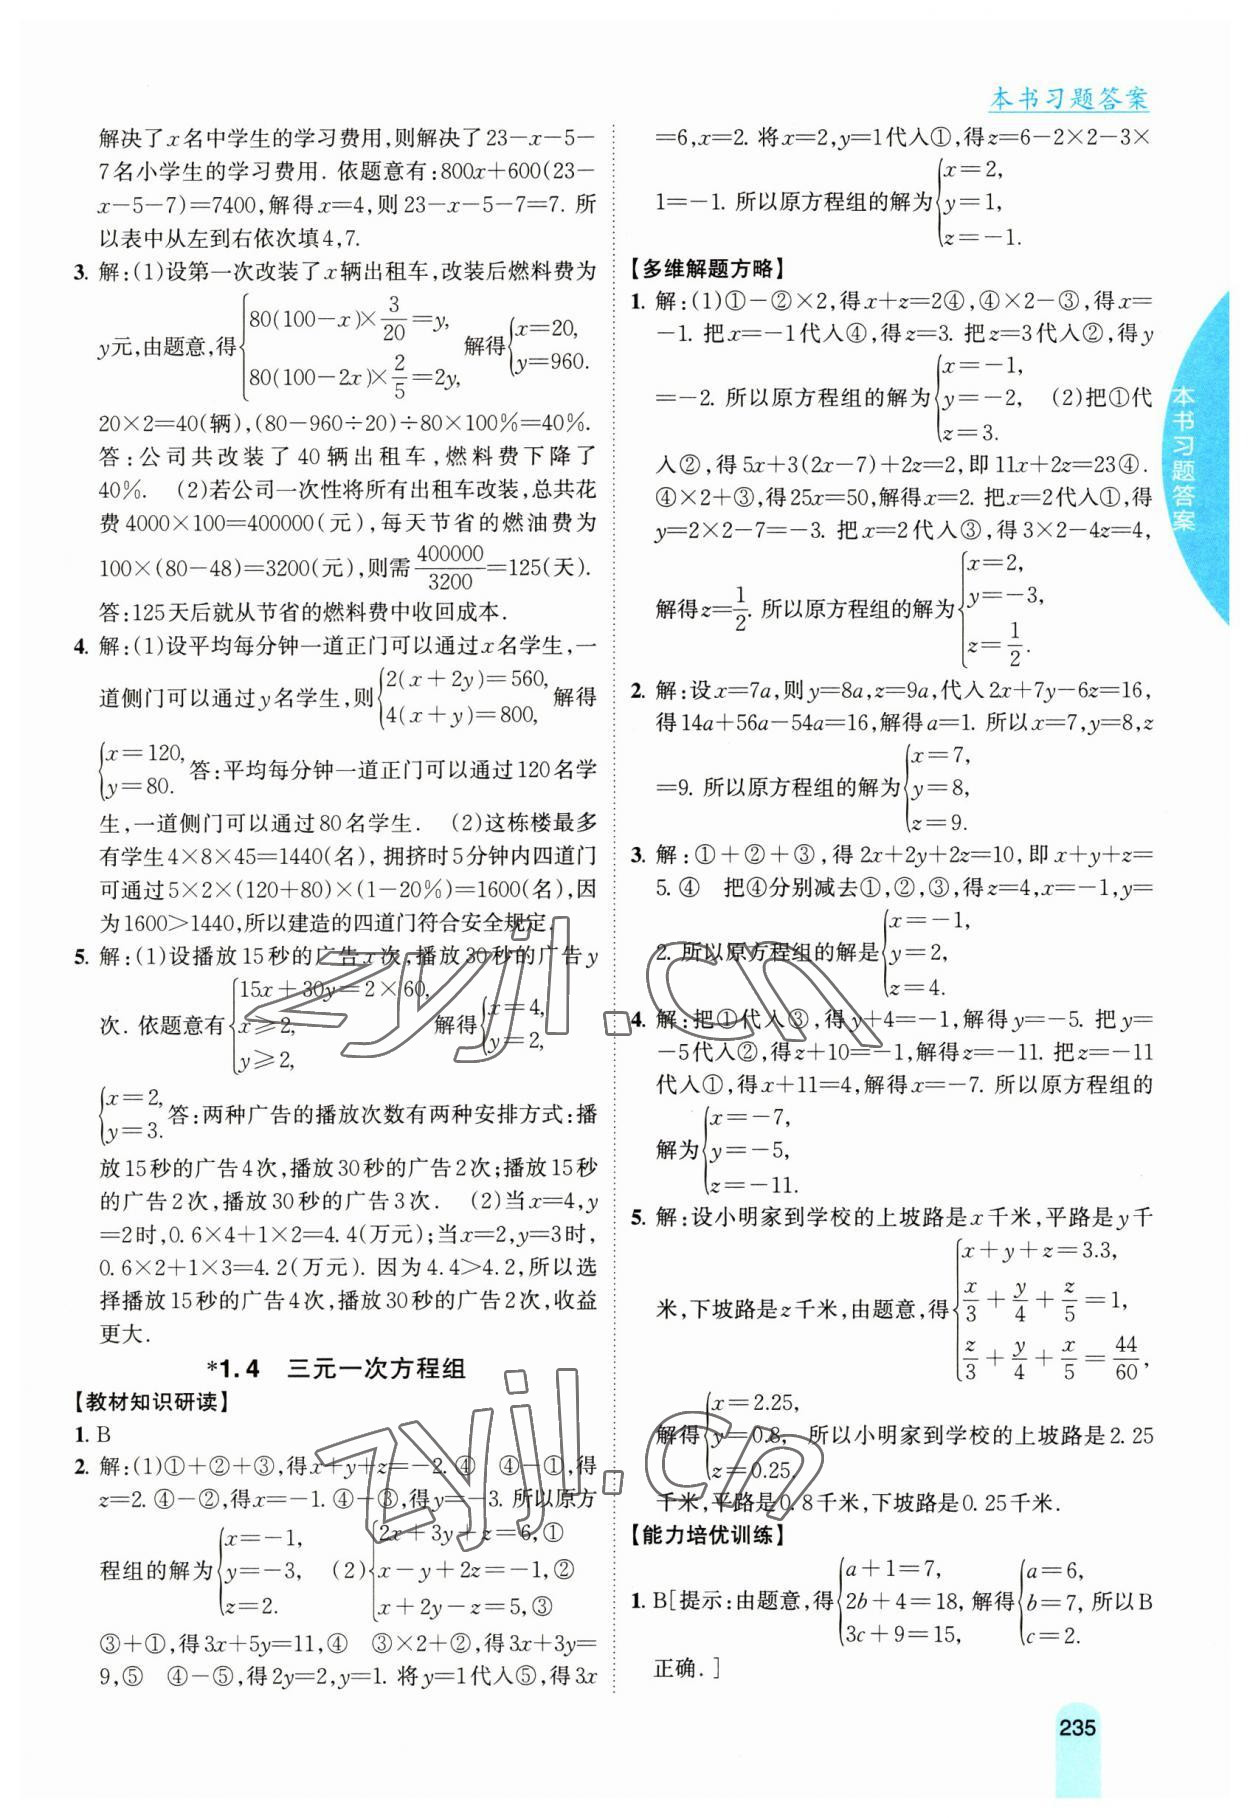 本书习题答案
解决了x名中学生的学习费用,则解决了23-x-5-
7名小学生的学习费用. 依题意有:800x+600(23-
x-5-7)=7400,解得x=4,则23-x-5-7=7. 所
以表中从左到右依次填4,7.
3. 解:(1)设第一次改装了x辆出租车,改装后燃料费为
y元,由题意,得{80(100-x)×3/20=y, 80(100-2x)×2/5=2y, 解得{x=20, y=960.
20×2=40(辆),(80-960÷20)÷80×100%=40%.
答:公司共改装了40辆出租车,燃料费下降了
40%. (2)若公司一次性将所有出租车改装,总共花
费4000×100=400000(元),每天节省的燃油费为
100×(80-48)=3200(元),则需400000/3200=125(天).
答:125天后就从节省的燃料费中收回成本.
4. 解:(1)设平均每分钟一道正门可以通过x名学生,一
道侧门可以通过y名学生,则{2(x+2y)=560, 4(x+y)=800, 解得
{x=120, y=80. 答:平均每分钟一道正门可以通过120名学
生,一道侧门可以通过80名学生. (2)这栋楼最多
有学生4×8×45=1440(名),拥挤时5分钟内四道门
可通过5×2×(120+80)×(1-20%)=1600(名),因
为1600>1440,所以建造的四道门符合安全规定.
5. 解:(1)设播放15秒的广告x次,播放30秒的广告y
次. 依题意有{15x+30y=2×60, x≥2, y≥2, 解得{x=4, y=2,
{x=2, y=3. 答:两种广告的播放次数有两种安排方式:播
放15秒的广告4次,播放30秒的广告2次;播放15秒
的广告2次,播放30秒的广告3次. (2)当x=4,y
=2时,0.6×4+1×2=4.4(万元);当x=2,y=3时,
0.6×2+1×3=4.2(万元). 因为4.4>4.2,所以选
择播放15秒的广告4次,播放30秒的广告2次,收益
更大.
*1.4 三元一次方程组
【教材知识研读】
1. B
2. 解:(1)①+②+③,得x+y+z=-2. ④ ④-①,得
z=2. ④-②,得x=-1. ④-③,得y=-3. 所以原方
程组的解为{x=-1, y=-3, z=2. (2){2x+3y+z=6,① x-y+2z=-1,② x+2y-z=5,③
③+①,得3x+5y=11,④ ③×2+②,得3x+3y=
9,⑤ ④-⑤,得2y=2,y=1. 将y=1代入⑤,得3x
=6,x=2. 将x=2,y=1代入①,得z=6-2×2-3×
1=-1. 所以原方程组的解为{x=2, y=1, z=-1.
【多维解题方略】
1. 解:(1)①-②×2,得x+z=2④,④×2-③,得x=
-1. 把x=-1代入④,得z=3. 把z=3代入②,得y
=-2. 所以原方程组的解为{x=-1, y=-2, z=3. (2)把①代
入②,得5x+3(2x-7)+2z=2,即11x+2z=23④.
④×2+③,得25x=50,解得x=2. 把x=2代入①,得
y=2×2-7=-3. 把x=2代入③,得3×2-4z=4,
解得z=1/2. 所以原方程组的解为{x=2, y=-3, z=1/2.
2. 解:设x=7a,则y=8a,z=9a,代入2x+7y-6z=16,
得14a+56a-54a=16,解得a=1. 所以x=7,y=8,z
=9. 所以原方程组的解为{x=7, y=8, z=9.
3. 解:①+②+③,得2x+2y+2z=10,即x+y+z=
5. ④ 把④分别减去①,②,③,得z=4,x=-1,y=
2. 所以原方程组的解是{x=-1, y=2, z=4.
4. 解:把①代入③,得y+4=-1,解得y=-5. 把y=
-5代入②,得z+10=-1,解得z=-11. 把z=-11
代入①,得x+11=4,解得x=-7. 所以原方程组的
解为{x=-7, y=-5, z=-11.
5. 解:设小明家到学校的上坡路是x千米,平路是y千
米,下坡路是z千米,由题意,得{x+y+z=3.3, x/3+y/4+z/5=1, z/3+y/4+x/5=44/60,
解得{x=2.25, y=0.8, z=0.25. 所以小明家到学校的上坡路是2.25
千米,平路是0.8千米,下坡路是0.25千米.
【能力培优训练】
1. B[提示:由题意,得{a+1=7, 2b+4=18, 3c+9=15, 解得{a=6, b=7, c=2. 所以B
正确.]
本书习题答案
235
zyjl.cn
zyjl.cn